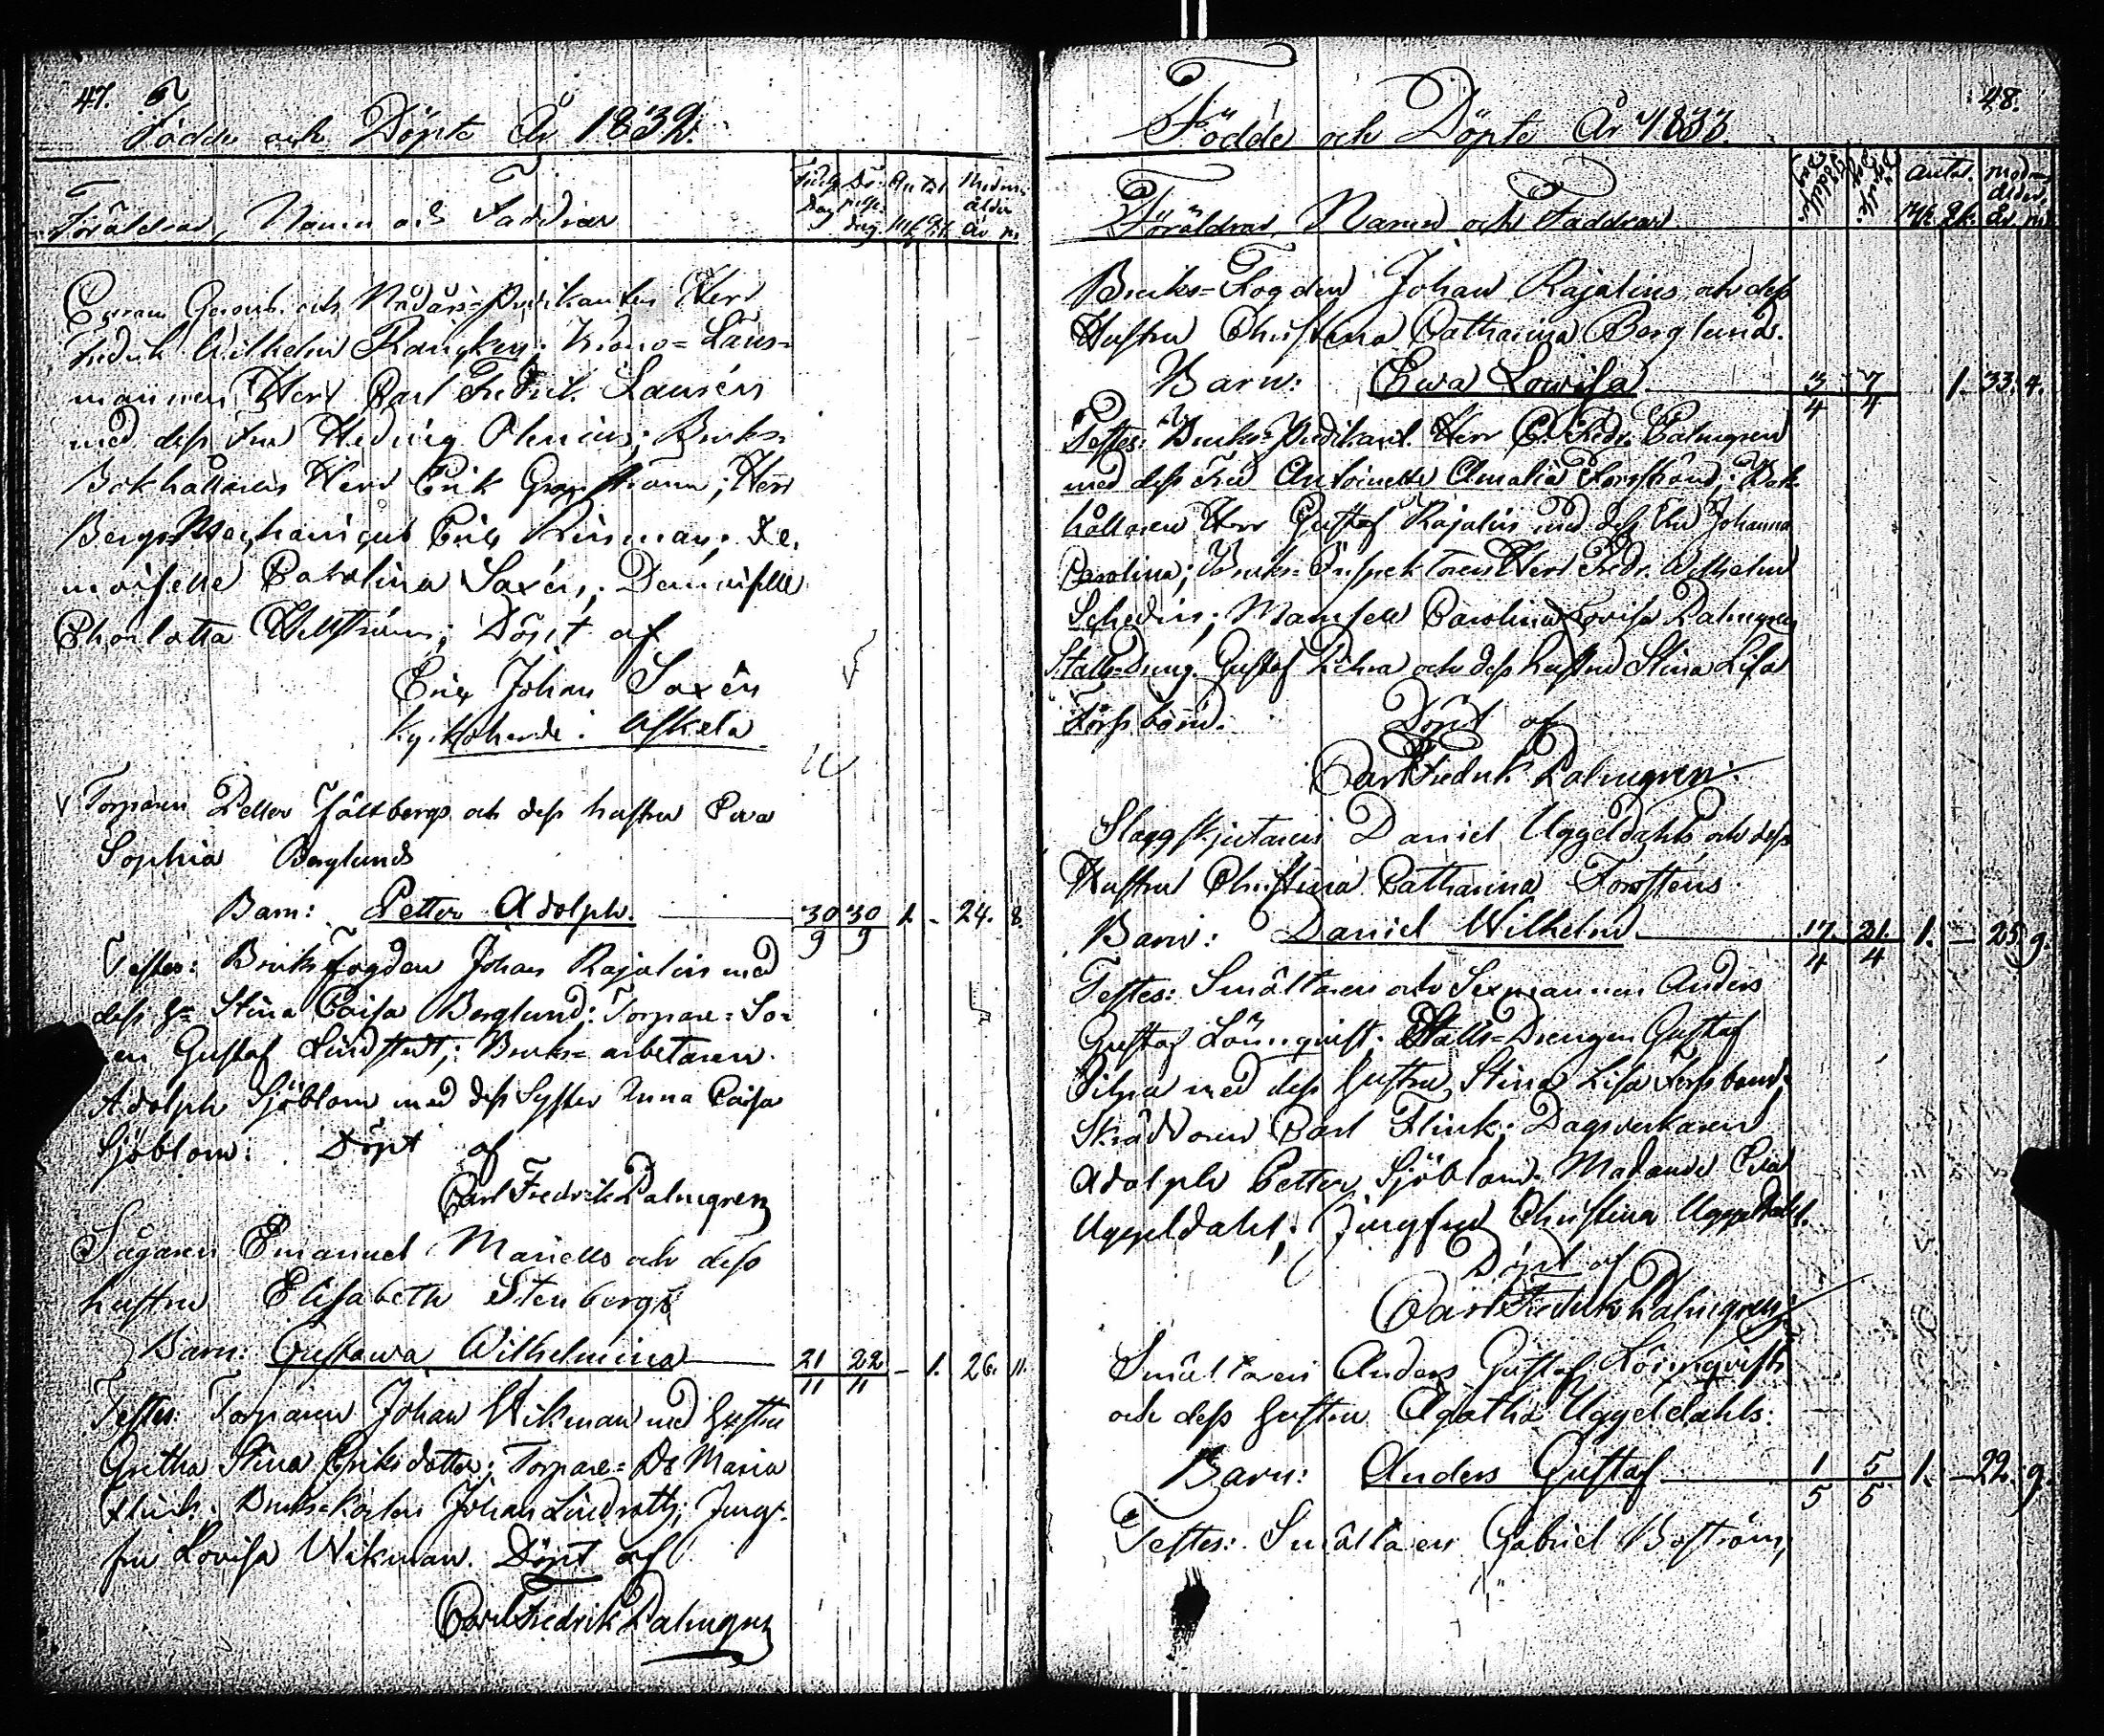 47.
Födde och Döpte År 1832.
Föräldrar, Namn och Faddrar
Födelse Dag Döpelse dag Antal Mk Qk Modrens ålder år m.
och Nådårs-Predikanten Herr
Fredrik Wilhelm Rancken; Krono-Läns-
mannen Herr Carl Fredrik Laurén
med dess Fru Hedvig Olenius; Bruks-
Bokhållaren Herr Erik Granström; Herr
Bergs Mechanicus Eric Rinman; De-
moiselle Carolina Saxén; Demoiselle
Charlotta Wellström; Döpt af
Eric Johan Saxén
Kyrkoherde i Askola
Torparen Petter Fältbergs och dess hustru Eva
Sophia Berglunds
Barn: Petter Adolph. 30/9 30/9 1. - 24. 8.
Testes: Bruksfogden Johan Rajalin med
dess Hu Stina Caisa Berglund; Torpare-So-
en Gustaf Lindstedt; Bruks-arbetaren
Adolph Sjöblom med dess Syster Anna Caisa
Sjöblom: Döpt af
Carl Fredrik Palmgren
Sågaren Emanuel Mariells och dess
hustru Elisabeth Stenbergs
Barn: Gustawa Wilhelmina 21/11 22/11 - 1. 26. 11.
Testes: Torparen Johan Wikman med hustru
Gretha Stina Eriksdotter; Torpare-Dr Maria
Flink; Bruks-Karlen Johan Lindroth; Jung-
fru Lovisa Wikman. Döpt af
Carl Fredrik Palmgren
48.
Födde och Döpte År 1833.
Föräldrar, Namn och Faddrar
Födelse Dag Döpelse Dag Antal. Mk. Qk. Modrens ålder. år. m.
Bruks-Fogden Johan Rajalins och dess
Hustru Christina Catharina Berglunds.
Barn: Ewa Lowisa 3/4 7/4 1. 33. 4.
Testes: Bruks-Predikant. Herr C. Fredr. Palmgren
med dess Fru Antoinette Amalia Forsstrand; Bok-
hållaren Herr Gustaf Rajalin med dess Fru Johanna
Carolina; Bruks-Inspektoren Herr Fredr. Wilhelm
Schedin; Mamsell Carolina Lovisa Palmgren
Stalls-Dreng. Gustaf Pihra och dess hustru Stina Lisa
Forsbom. Döpt af
Carl Fredrik Palmgren.
Slaggskjutaren Daniel Uggeldahls och dess
Hustru Christina Catharina Forstens
Barn: Daniel Wilhelm 17/4 21/4 1. - 25. 9.
Testes: Smältaren och Sexmannen Anders
Gustaf Lönnqvist; Stalls-Drengen Gustaf
Pihra med dess hustru Stina Lisa Forsbom;
Skräddaren Carl Flink; Dagsverkaren
Adolph Petter Sjöblom; Madame Eva
Uggeldahl; Jungfru Christina Uggeldahl.
Döpt af
Carl Fredrik Palmgren
Smältaren Anders Gustaf Lönnqvists
och dess hustru Agatha Uggeldahls:
Barn: Anders Gustaf 1/5 5/5 1. - 22. 9.
Testes: Smältaren Gabriel Boström,